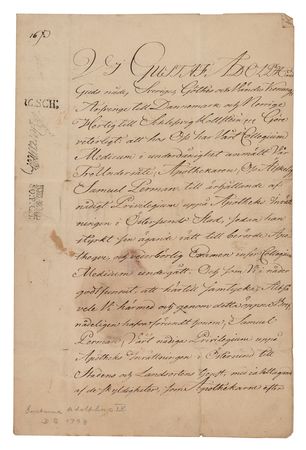 Wj GUSTAF ADOLPH
Guds nåde, Sveriges, Göthes och Vendes Konung,
Arfvinge till Dannemark och Norrige
Hertig till Schleswig Hollstein &c Göre
veterligt: att hos Oss har Vårt Collegium
Medicum i underdånighet anmält Vår
Tro Undersåte, Apothekaren
Samuel Perman till erhållande af
nådigt Privilegium uppå Apotheks Inrätt-
ningen i Östersunds Stad, sedan han
styrkt sin ägande rätt till berörde Apo-
thequ, och vederbörlig Examen inför Collegium
Medicum undergått; Och som Vi i nåder
godtfunnit att härtill samtycka; Altså
vele Vi härmed och genom detta öppna Bref
nådeligen hafva förundt honom, Samuel
Perman, Vårt nådiga Privilegium uppå
Apotheks Inrättningen i Östersund till
Stadens och Landsortens tjenst, med iakttagande
af de skyldigheter, som Apothekarne efter
Gustav Adolph IV
1798